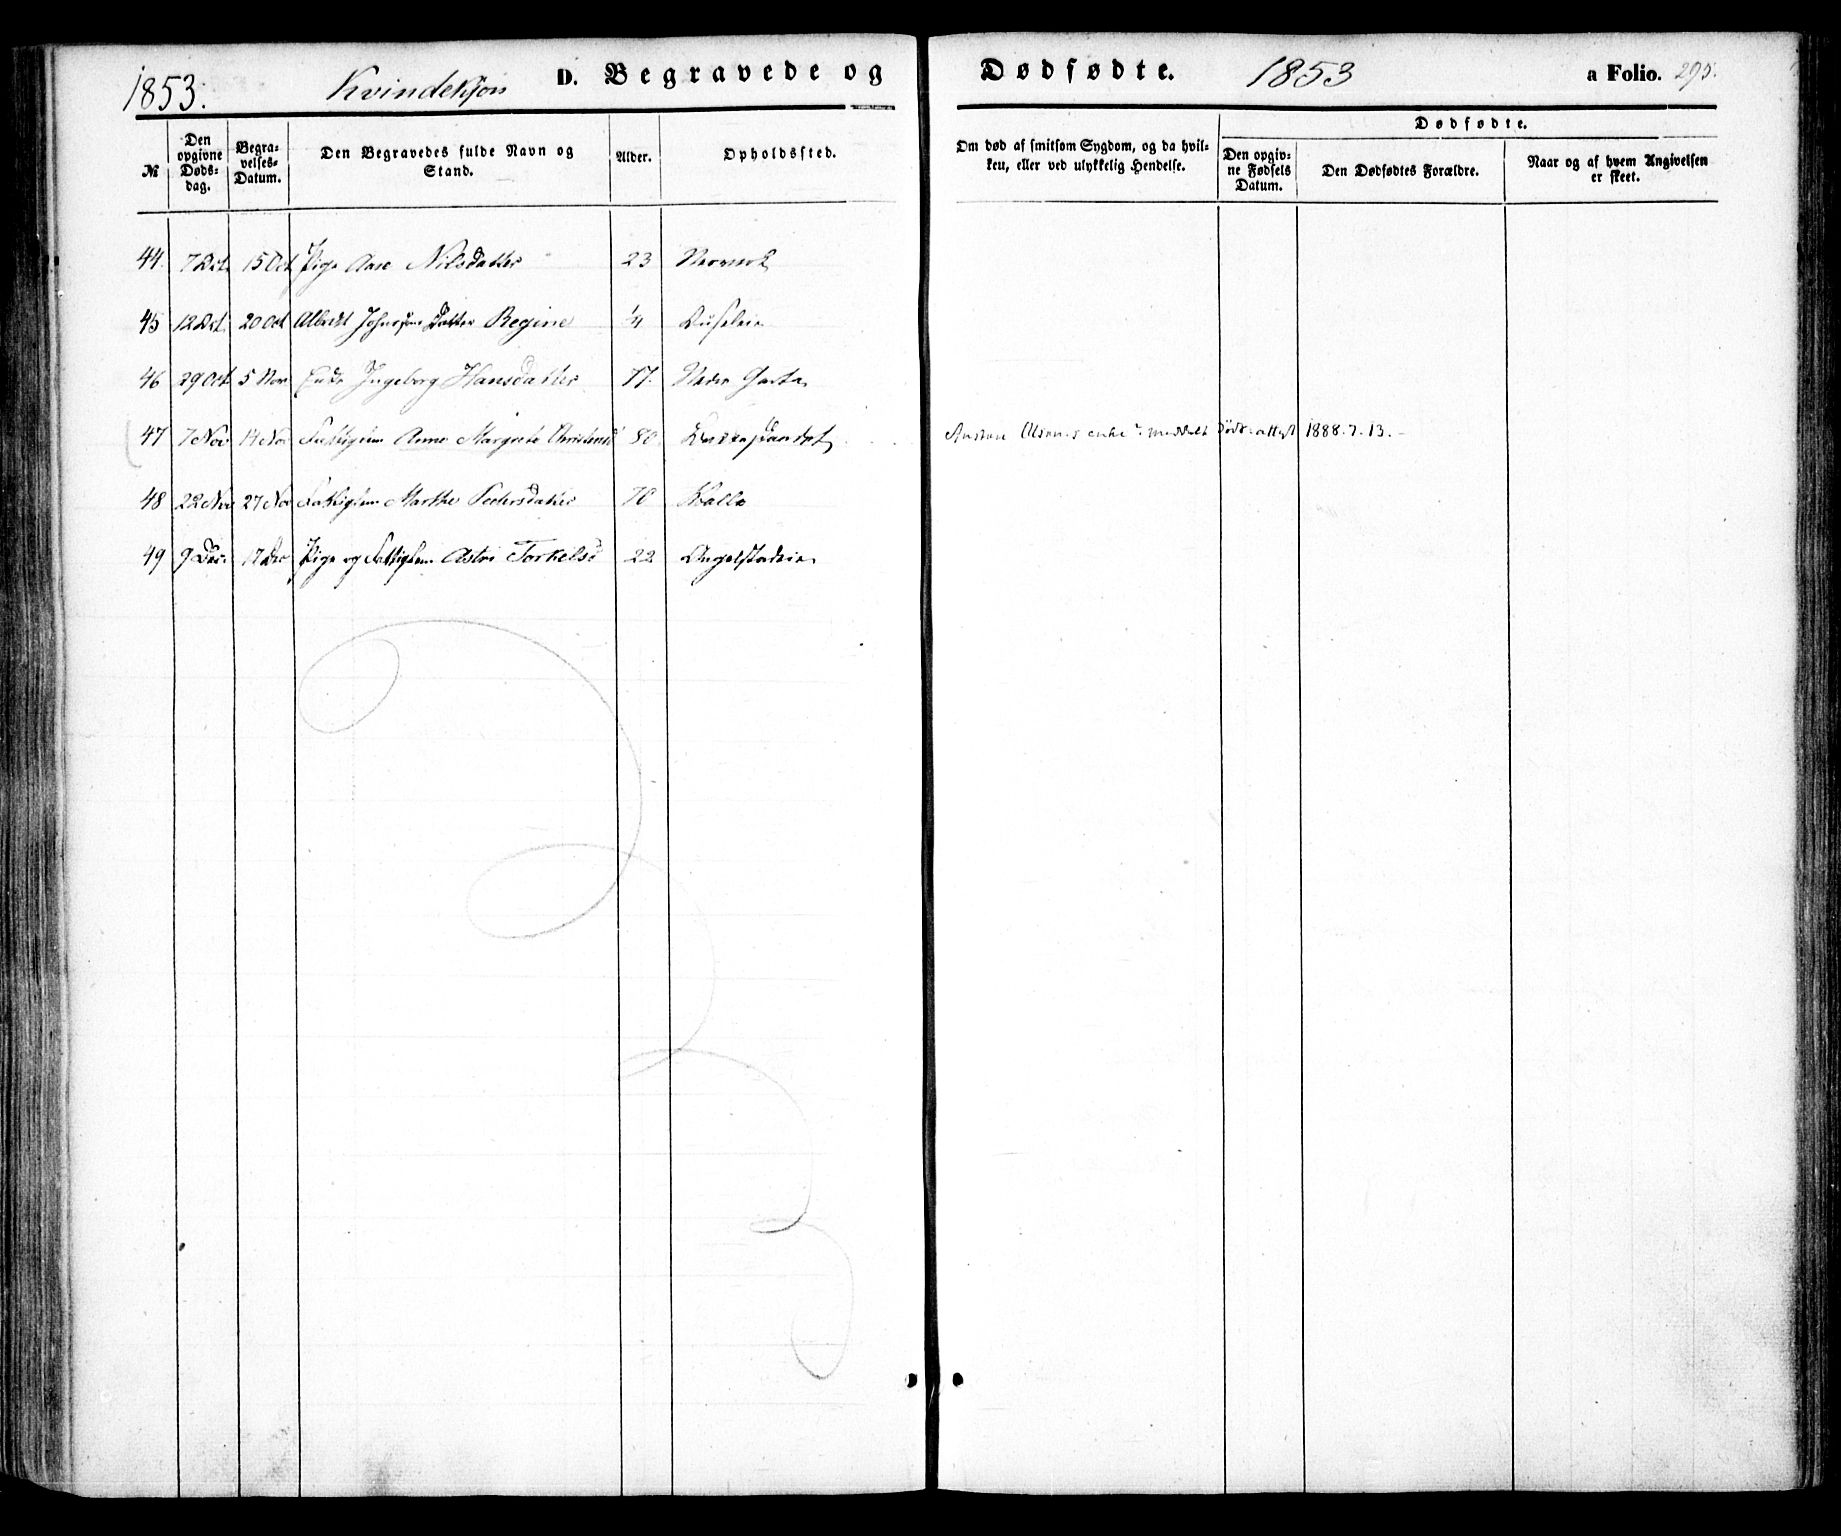 1853. Kvindekjøn D. Begravede og Dødfødte. 1853 a Folio. 295.
№ Den opgivne Døds-dag. Begra-velses-Datum. Den Begravedes fulde Navn og Stand. Alder. Opholdssted. Om død af smitsom Sygdom, og da hvil-ken, eller ved ulykkelig Hendelse. Dødfødte. Den opgiv-ne Fødsels Datum. Den Dødfødtes Forældre. Naar og af hvem Angivelsen er skeet.
44. 7 Oct. 15 Oct Pige Aase Nilsdatter 23
45 12 Oct. 20 Oct Johnsens Datter Regine 1/4
46 29 Oct 5 Nov Enke Ingeborg Hansdatter 77. Nedre
47 7 Nov 14 Nov Fattiglem Anne Margrete Christensd 80. Olsens enke meddelt Dødsattest 1888.7.13.
48 22 Nov 27 Nov Fattiglem Marthe Pedersdatter 70
49 9 Dec. 17 Dec Pige og Fattiglem Astri Torkelsd 22 Angelstadeie